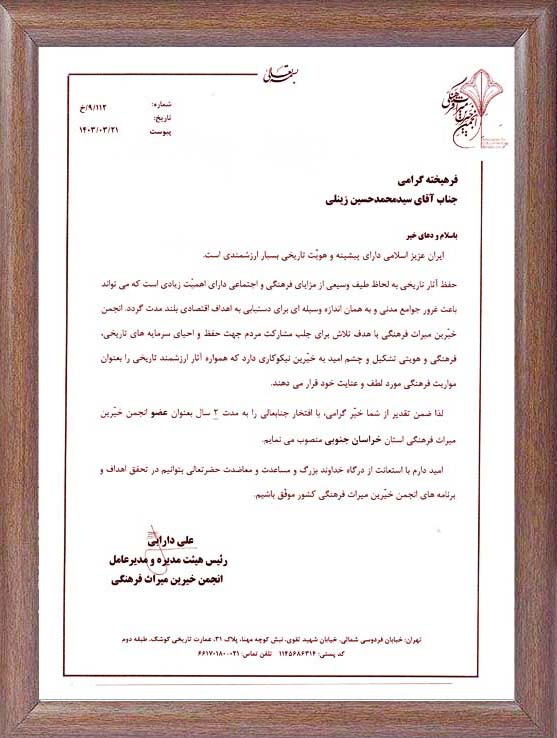 بسمه تعالی
شماره: ۹/۱۱۲/خ
تاریخ:
پیوست ۱۴۰۳/۰۳/۲۱
انجمن خیرین میراث فرهنگی
فرهیخته گرامی
جناب آقای سیدمحمدحسین زینلی
باسلام و دعای خیر
ایران عزیز اسلامی دارای پیشینه و هویّت تاریخی بسیار ارزشمندی است.
حفظ آثار تاریخی به لحاظ طیف وسیعی از مزایای فرهنگی و اجتماعی دارای اهمیّت زیادی است که می تواند
باعث غرور جوامع مدنی و به همان اندازه وسیله ای برای دستیابی به اهداف اقتصادی بلند مدت گردد. انجمن
خیّرین میراث فرهنگی با هدف تلاش برای جلب مشارکت مردم جهت حفظ و احیای سرمایه های تاریخی،
فرهنگی و هویتی تشکیل و چشم امید به خیّرین نیکوکاری دارد که همواره آثار ارزشمند تاریخی را بعنوان
مواریث فرهنگی مورد لطف و عنایت خود قرار می دهند.
لذا ضمن تقدیر از شما خیّر گرامی، با افتخار جنابعالی را به مدت ۲ سال بعنوان عضو انجمن خیّرین
میراث فرهنگی استان خراسان جنوبی منصوب می نمایم.
امید دارم با استعانت از درگاه خداوند بزرگ و مساعدت و معاضدت حضرتعالی بتوانیم در تحقق اهداف و
برنامه های انجمن خیّرین میراث فرهنگی کشور موفّق باشیم.
علی دارابی
رئیس هیئت مدیره و مدیرعامل
انجمن خیرین میراث فرهنگی
تهران: خیابان فردوسی شمالی، خیابان شهید تقوی، نبش کوچه مهنا، پلاک ۳۱، عمارت تاریخی کوشک، طبقه دوم
کد پستی: ۱۱۴۵۶۸۶۳۱۴ تلفن تماس: ۰۲۱-۶۶۱۷۰۱۸۰